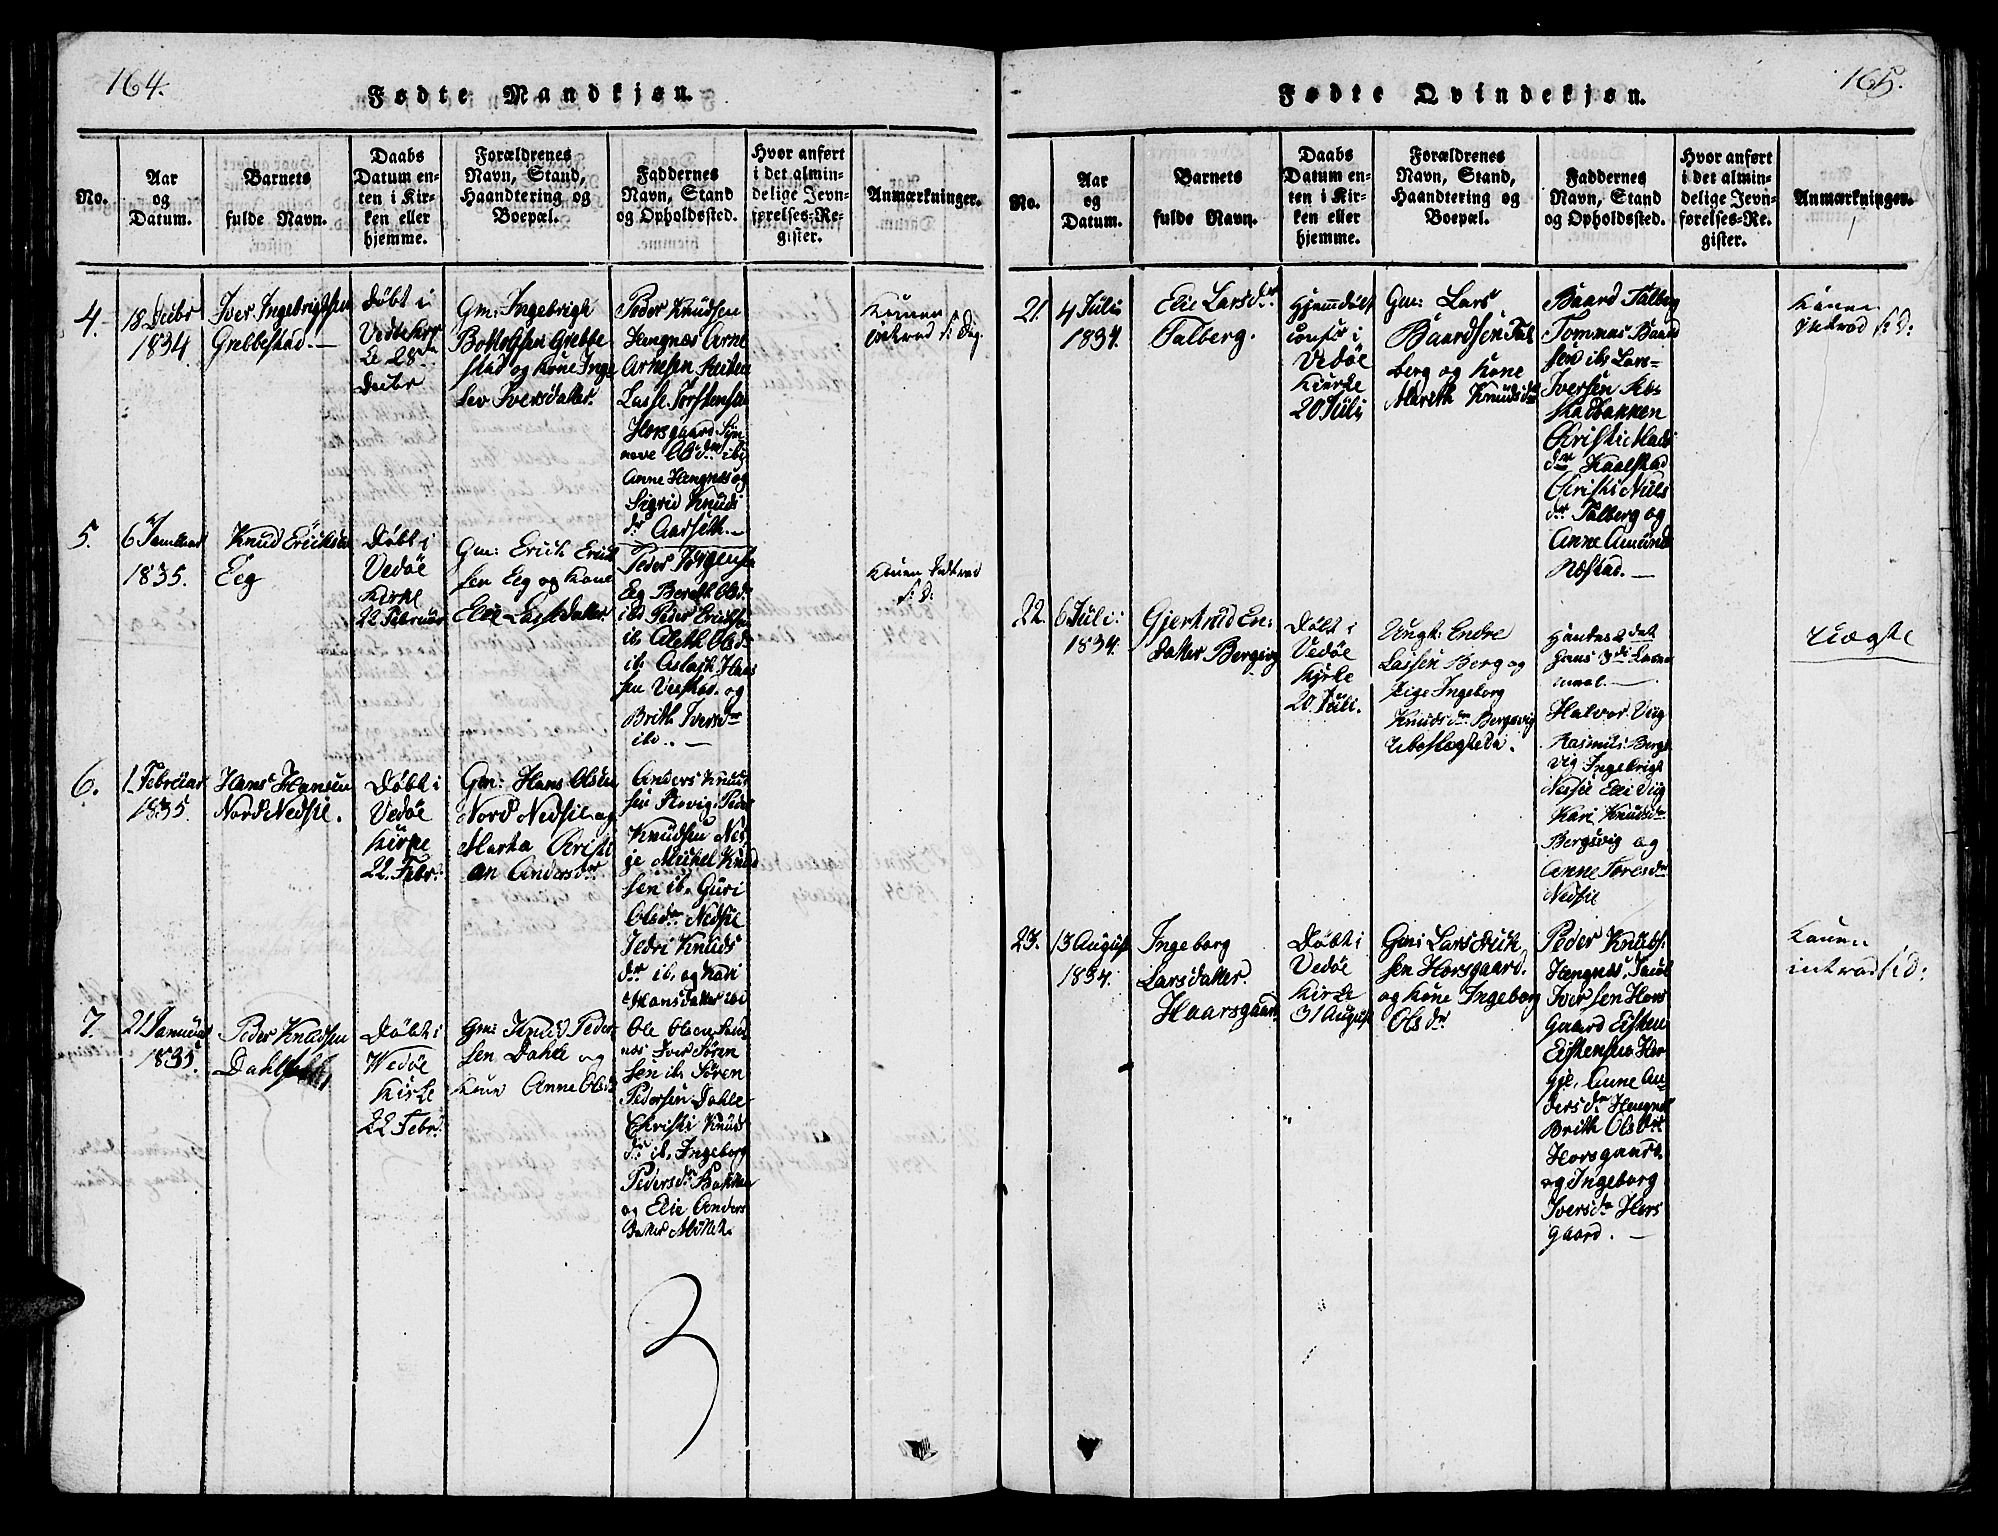 164.
Fødte Mandkjøn.
No.
Aar
og
Datum.
Barnets
fulde Navn.
Daabs
Datum en-
ten i Kir-
ken eller
hjemme.
Forældrenes
Navn, Stand,
Haandtering og
Boepæl.
Faddernes
Navn, Stand
og Opholdssted.
Hvor anført
i det almin-
delige Jevn-
førelses-Re-
gister.
Anmærkninger.
4.
18 Decbr
1834
Iver Ingebrigtsen
Grebbestad.
Døbt i
Vedøe Kir
ke 28de
Decbr
Gm: Ingebrigt
Bottolfsen Grebbe
stad og Kone Inge
lev Iversdatter.
Peder Knudsen
Hengnæs Arne
Arnesen
Lasse Torstensen
Horsgaard Syn-
neve Olsdr ib:
Anne Hengnæs og
Sigrid Knuds
dr Aarseth.
Konen
introd s: Dag.
5.
6 Januar
1835.
Knud Erichsen
Eeg
Døbt i
Vedøe
Kirke
22 Februar
Gm: Erich Erich
sen Eeg og Kone
Elie Lassedatter.
Peder Jørgensen
Eeg Bereth Olsdr
ib: Peder Erichsen
ib: Aleth Olsdr
ib: Aslack Hans
sen Veestad. og
Brith Iversdr
ib:
Konen Indtrod
s: D:
6.
1. Februar
1835.
Hans Hansen
Nord Nedsie.
Døbt i
Vedøe
Kirke
22. Febr:
Gm: Hans Olsen
Nord Nedsie og
Marta Christi
an Andersdr
Anders Knud
sen Rovig. Peder
Knudsen Nes
je Mickel Knud
sen ib. Guri
Olsdr Nedsie
Jedri Knuds
dr ib. og Kari
Hansdatter
7.
21 Januar
1835.
Peder Knudsen
Døbt i
Wedøe
Kirke
22 Febr.
Gm: Knud Peder
sen Dahle og
Kone Anne Olsdr
Ole Olsen
Iver Søren
sen ib. Søren
Pedersen Dahle
Christi Knuds
dr ib. Ingeborg
Pedersdr Bakken
og Elie Anders
datter
3
165.
Fødte Qvindekjøn.
No.
Aar
og
Datum.
Barnets
fulde Navn.
Daabs
Datum en-
ten i Kir-
ken eller
hjemme.
Forældrenes
Navn, Stand,
Haandtering og
Boepæl.
Faddernes
Navn, Stand
og Opholdssted.
Hvor anført
i det almin-
delige Jevn-
førelses-Re-
gister.
Anmærkninger.
21.
4 Juli
1834.
Elie Larsdr
Talberg.
Hjemdøbt
conf: i
Vedøe
Kirke
20 Juli
Gm: Lars
Baardsen Tal
berg og Kone
Marith Knudsdr
Baard Talberg
Tommas Baard
sen ib. Lars
Iversen
Christi Mads
dr Kaalstad
Christi Niels
dr Talberg og
Anne Amunds
Næstad.
Konen
Indtrod s: D:
22.
6 Juli:
1834.
Gjertrud En:
datter Bergsvig
Døbt i
Vedøe
Kirke
20 Juli.
Ungk: Endre
Lassen Berg og
Pige Ingeborg
Knudsdr Bergsvig
Ubeslægtede.
Hendes 2det
Hans 3di Leier
maal.
Halvor Viig
Rasmus Bergs
vig Ingebrigt
Nedsie Elie Viig
Kari Knudsdr
Bergsvig og
Anne Toresdr
Nedsie
Uægte
23.
13 August
1834.
Ingeborg
Larsdatter
Haarsgaard
Døbt i
Vedøe
Kirke
31 August
Gm: Lars
sen Horsgaard.
og Kone Ingeborg
Olsdr
Peder Knuds:
Hengnæs, Jacob
Iversen Hors
gaard Eisten
Eistensen Her
gje, Anne An
dersdr Hengnæs
Brith Olsdtr
Horsgaard.
og Ingeborg
Iversdr Hors
gaard.
Konen
introd s: D: